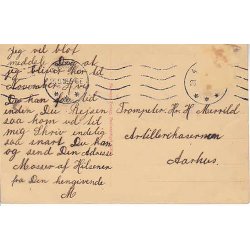 Jeg vil blot
meddele Dig at
jeg bliver her til
November. Hvis
Du kan faa Tid
inden Du Rejser
saa kom ud til
mig Skriv endelig
saa snart Du kan
og send Din Adresse
Masser af Hilsener
fra Din hengivende
M
Trompeter Hr. H Merrild
Artillerikasernen
Aarhus.